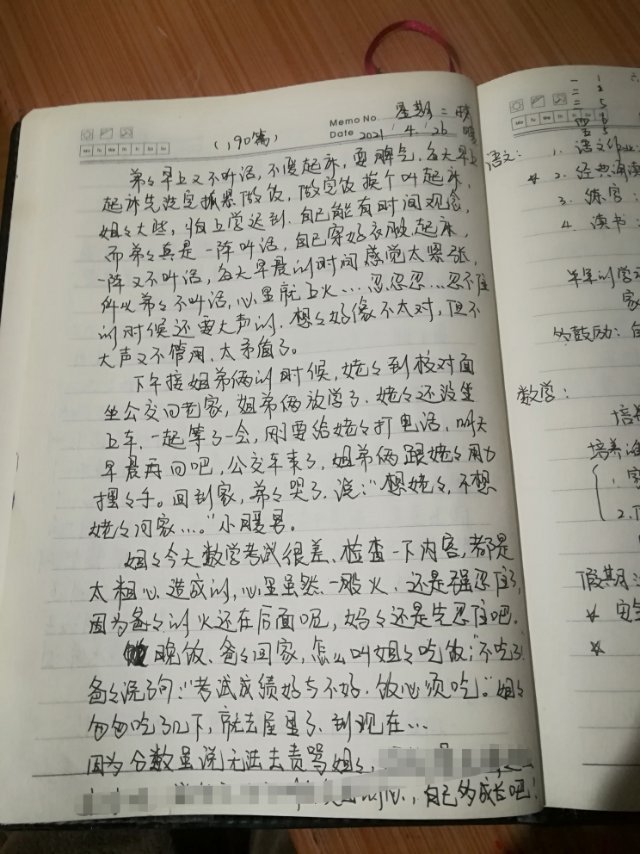 Memo No. 星期二 晴
(190篇)
Date 2021.4.26
弟々早上又不听话,不愿起床,要脾气,每天早上
起床先洗完抓紧做饭,做完饭挨个叫起床,
姐々大些,怕上学迟到,自己能有时间观念,
而弟々真是一阵听话,自己穿好衣服起床,
一阵又不听话,每天早晨的时间感觉太紧张,
所以弟々不听话,心里就上火…忍忍忍…忍不住
的时候还要大声的,想々好像不太对,但不
大声又不管用,太矛盾了。
下午接姐弟俩的时候,姥々到校对面
坐公交回老家,姐弟俩放学了,姥々还没坐
上车,一起等了一会,刚要给姥々打电话,叫天
早晨再回吧,公交车来了,姐弟俩跟姥々用力
摆々手。回到家,弟々哭了,说:"想姥々,不想
姥々回家…。"小暖男。
姐々今天数学考试很差,检查一下内容,都是
太粗心造成的,心里虽然一股火,还是强忍住了,
因为爸々的火还在后面呢,妈々还是先忍住吧。
晚饭,爸々回家,怎么叫姐々吃饭:"不吃了"
爸々说了句:"考试成绩好与不好,饭必须吃。"姐々
匆匆吃了几下,就去屋里了,到现在…
因为分数虽说无法去责骂姐々,
自己的成长吧!
语文:
1. 语文作业:
2. 经典诵读
3. 练字:
4. 读书:
早早的学习
家
多鼓励:
数学:
培养
培养
1. 家
2.
假期:
安全